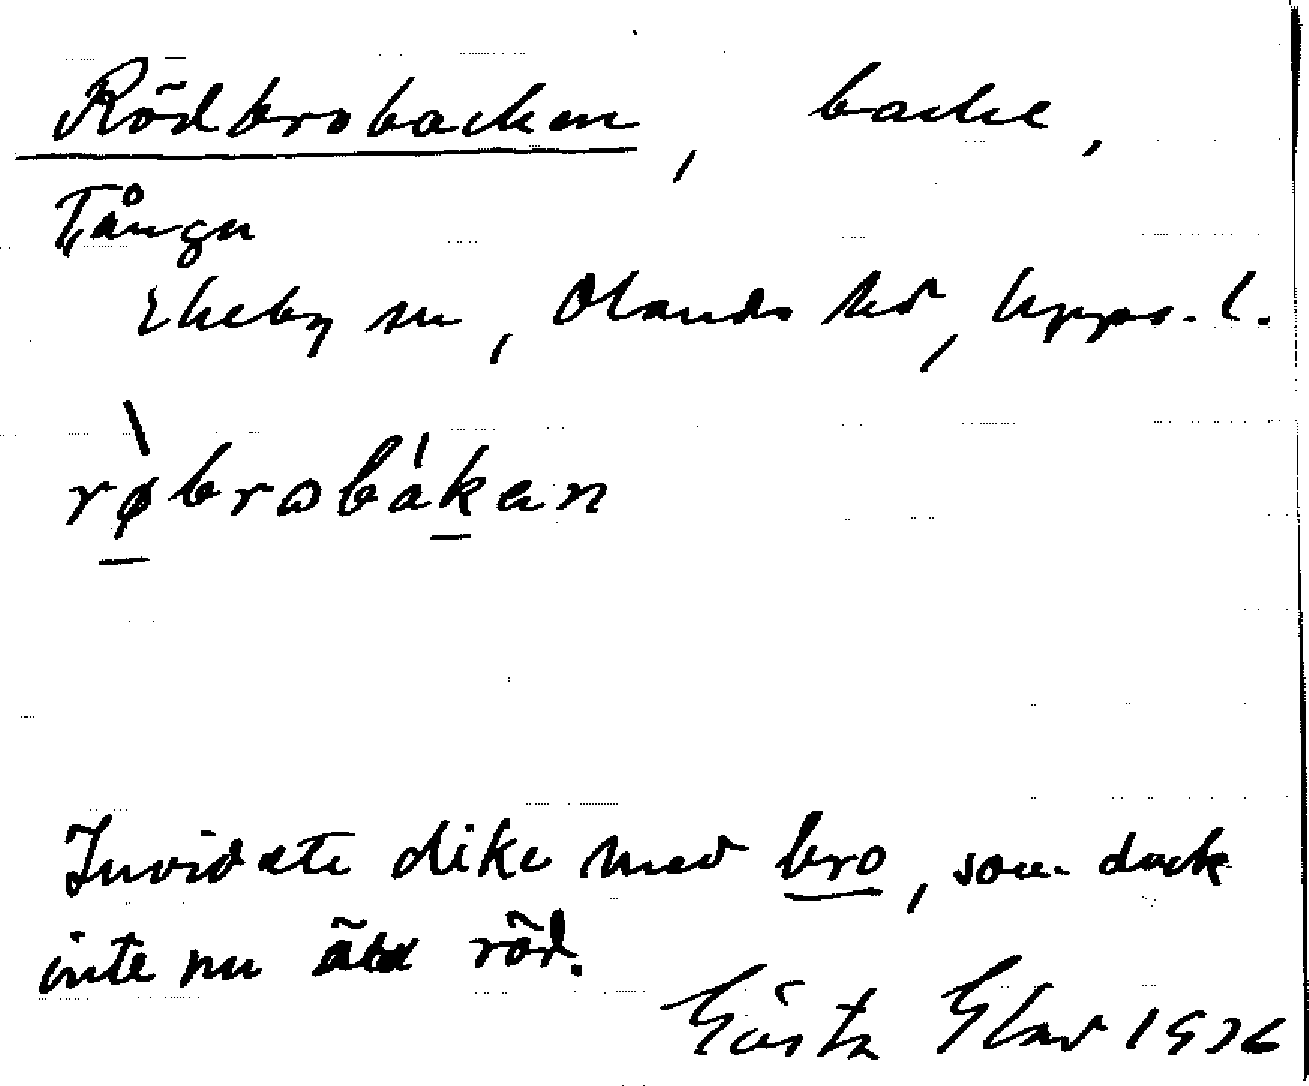 Rödbrobacken, backe,
Tånga
Ekeby sn, Olands hd, Upps. l.
rø̀brobákan
Invid ete dike med bro, som dock
inte nu är röd.
Gösta Glad 1936